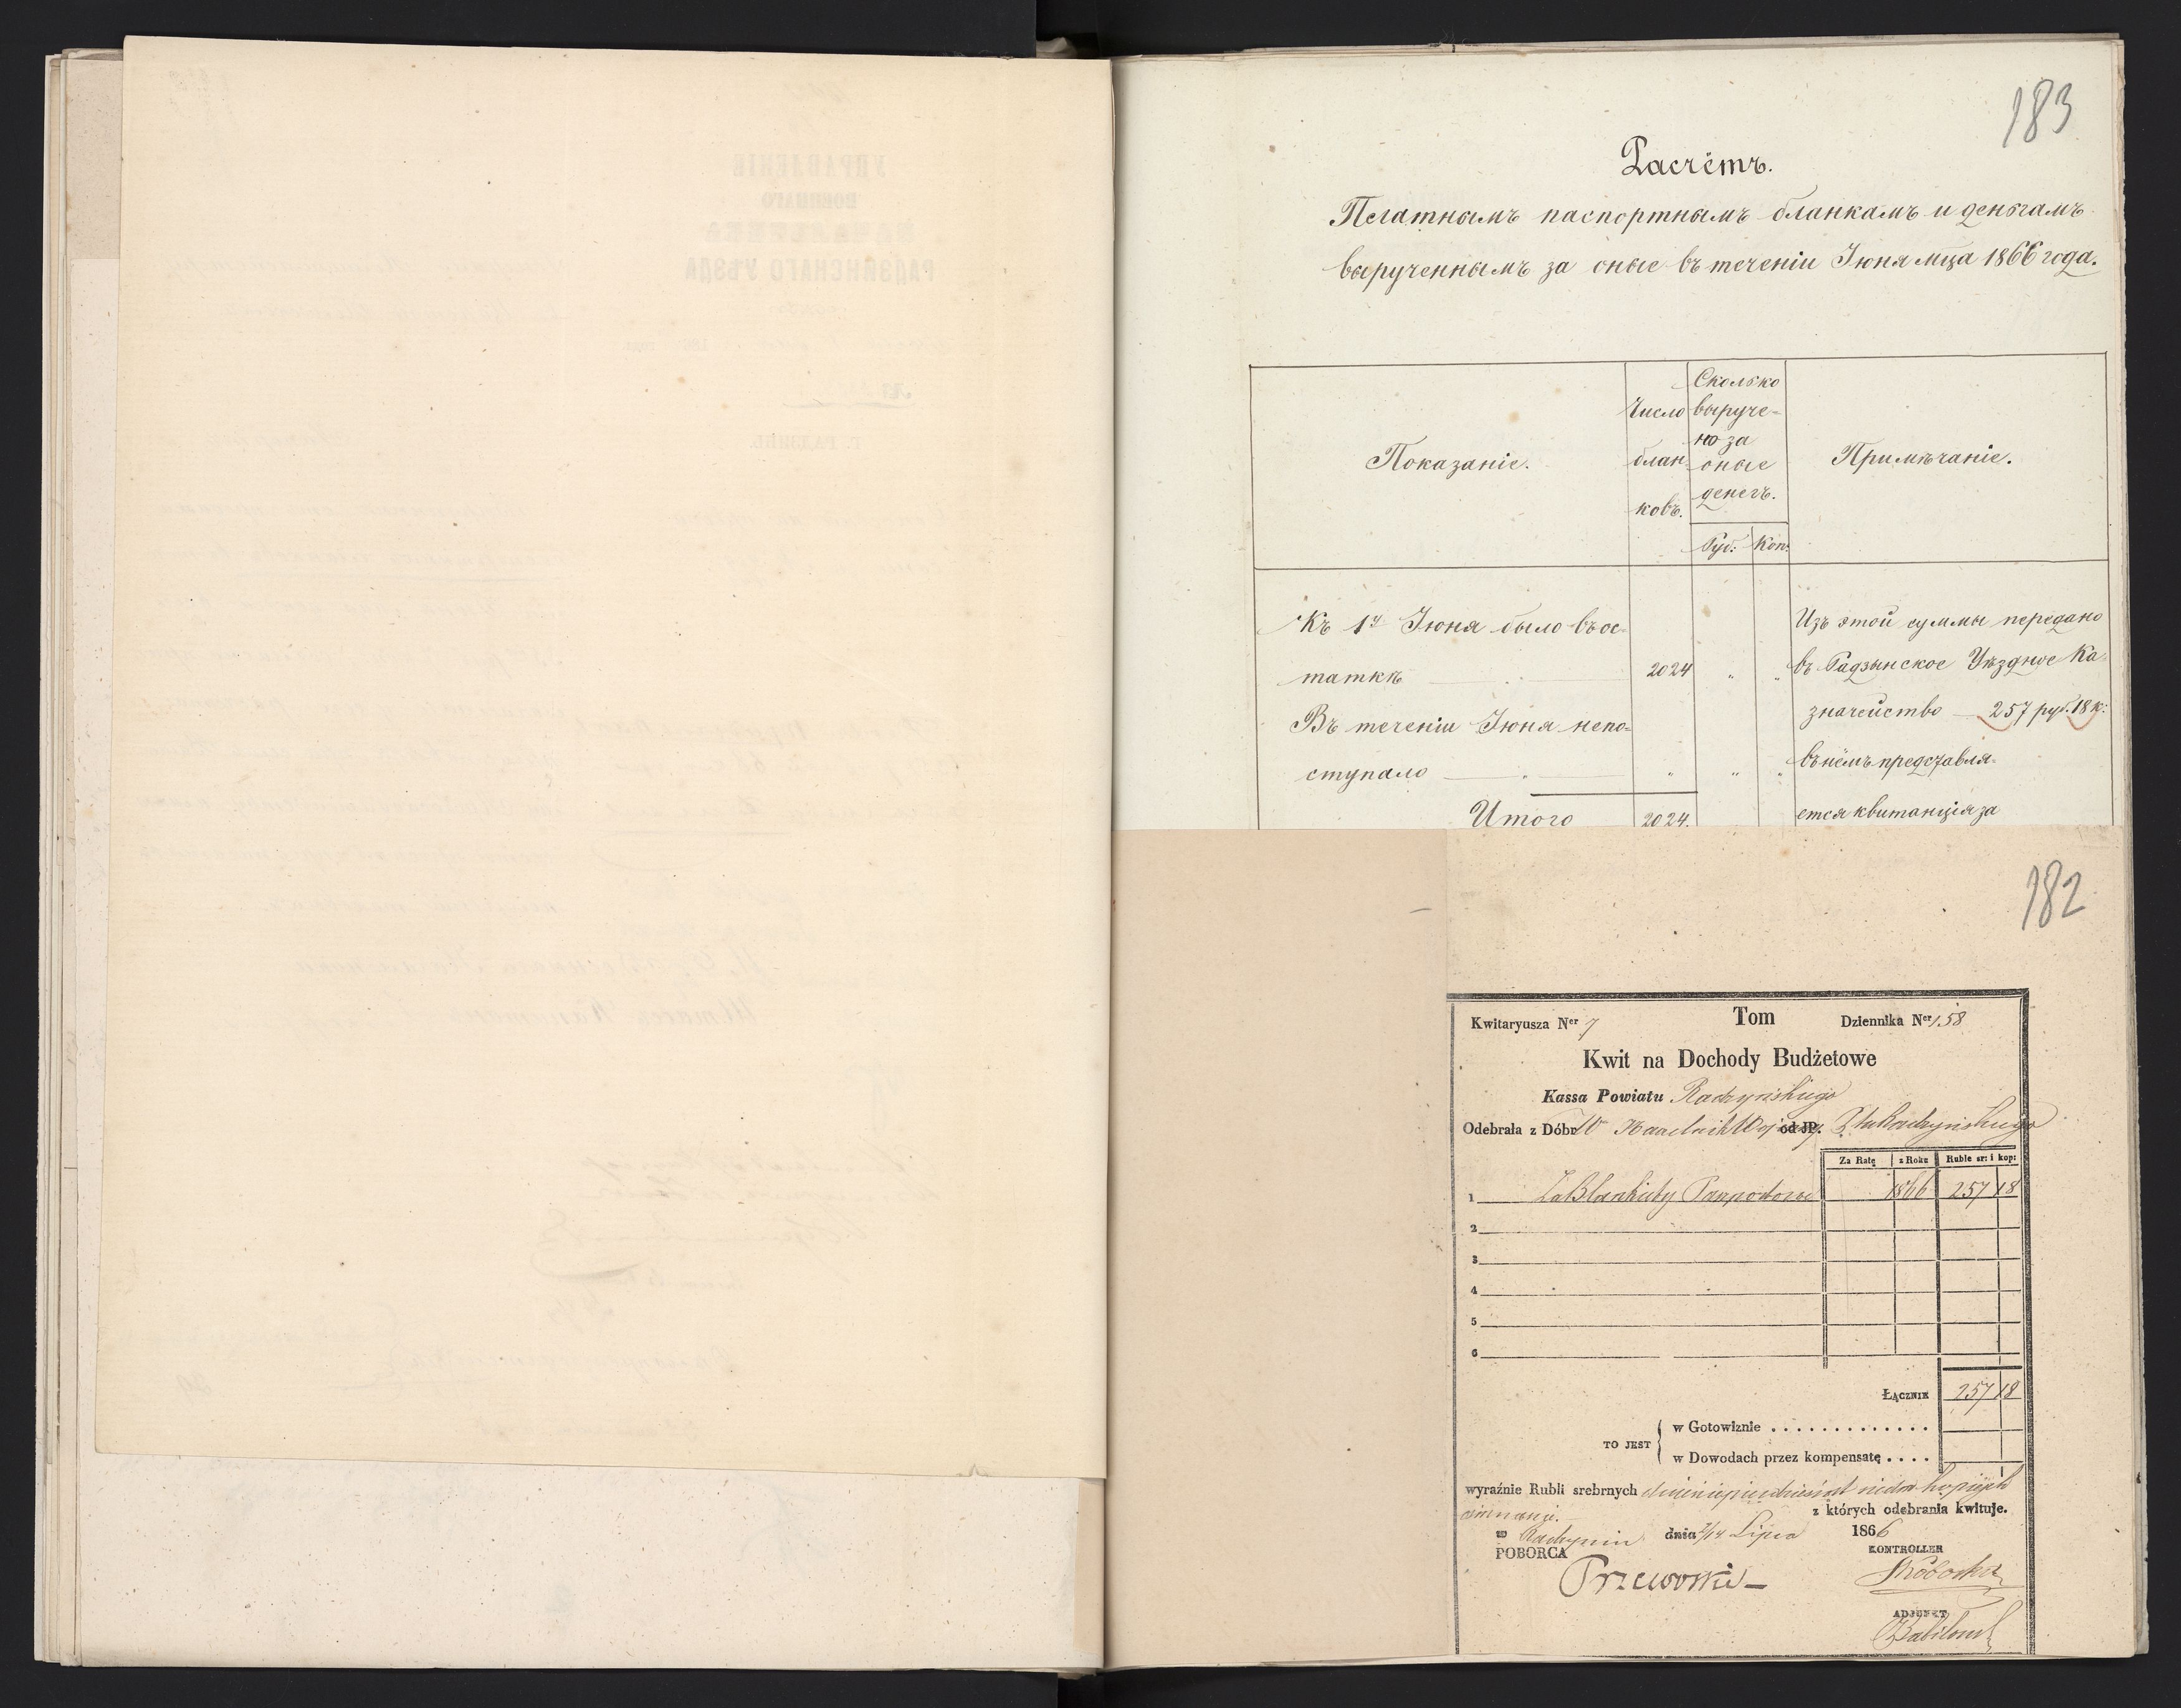 183
Расчётъ.
Печатнымъ паспортнымъ бланкамъ и деньгамъ
вырученнымъ за оные въ теченіи Іюня мца 1866 года.
Показаніе.
Число блан- ковъ.
Сколько выруче- но за оные денегъ.
Руб: Коп:
Примѣчаніе.
Къ 1у Іюня было въ ос-
таткѣ 2024 " "
Въ теченіи Іюня непо-
ступало " " "
Итого 2024.
Изъ этой суммы передано
въ Радзынское Уѣздное Ка-
значейство 257 руб. 18 к:
въ нёмъ представля-
ется квитанція за
182
Kwitaryusza Ner 7 Tom Dziennika Ner 158
Kwit na Dochody Budżetowe
Kassa Powiatu Radzyńskiego
Odebrała z Dóbr W Naczelnik Wojenny od JP. Ptu Radzyńskiego
Za Ratę z Roku Ruble sr: i kop:
1 Za Blankiety Paszportowe 1866 257 18
2
3
4
5
6
Łącznie 257 18
TO JEST
w Gotowiznie . . . . . . . . . . . . .
w Dowodach przez kompensatę . . . .
wyraźnie Rubli srebrnych dwieściepięćdziesiąt siedm kopiejek
ośmnaście. z których odebrania kwituje.
w Radzyniu dnia 2/14 Lipca 1866
POBORCA KONTROLLER
Przewoski
ADJUNKT